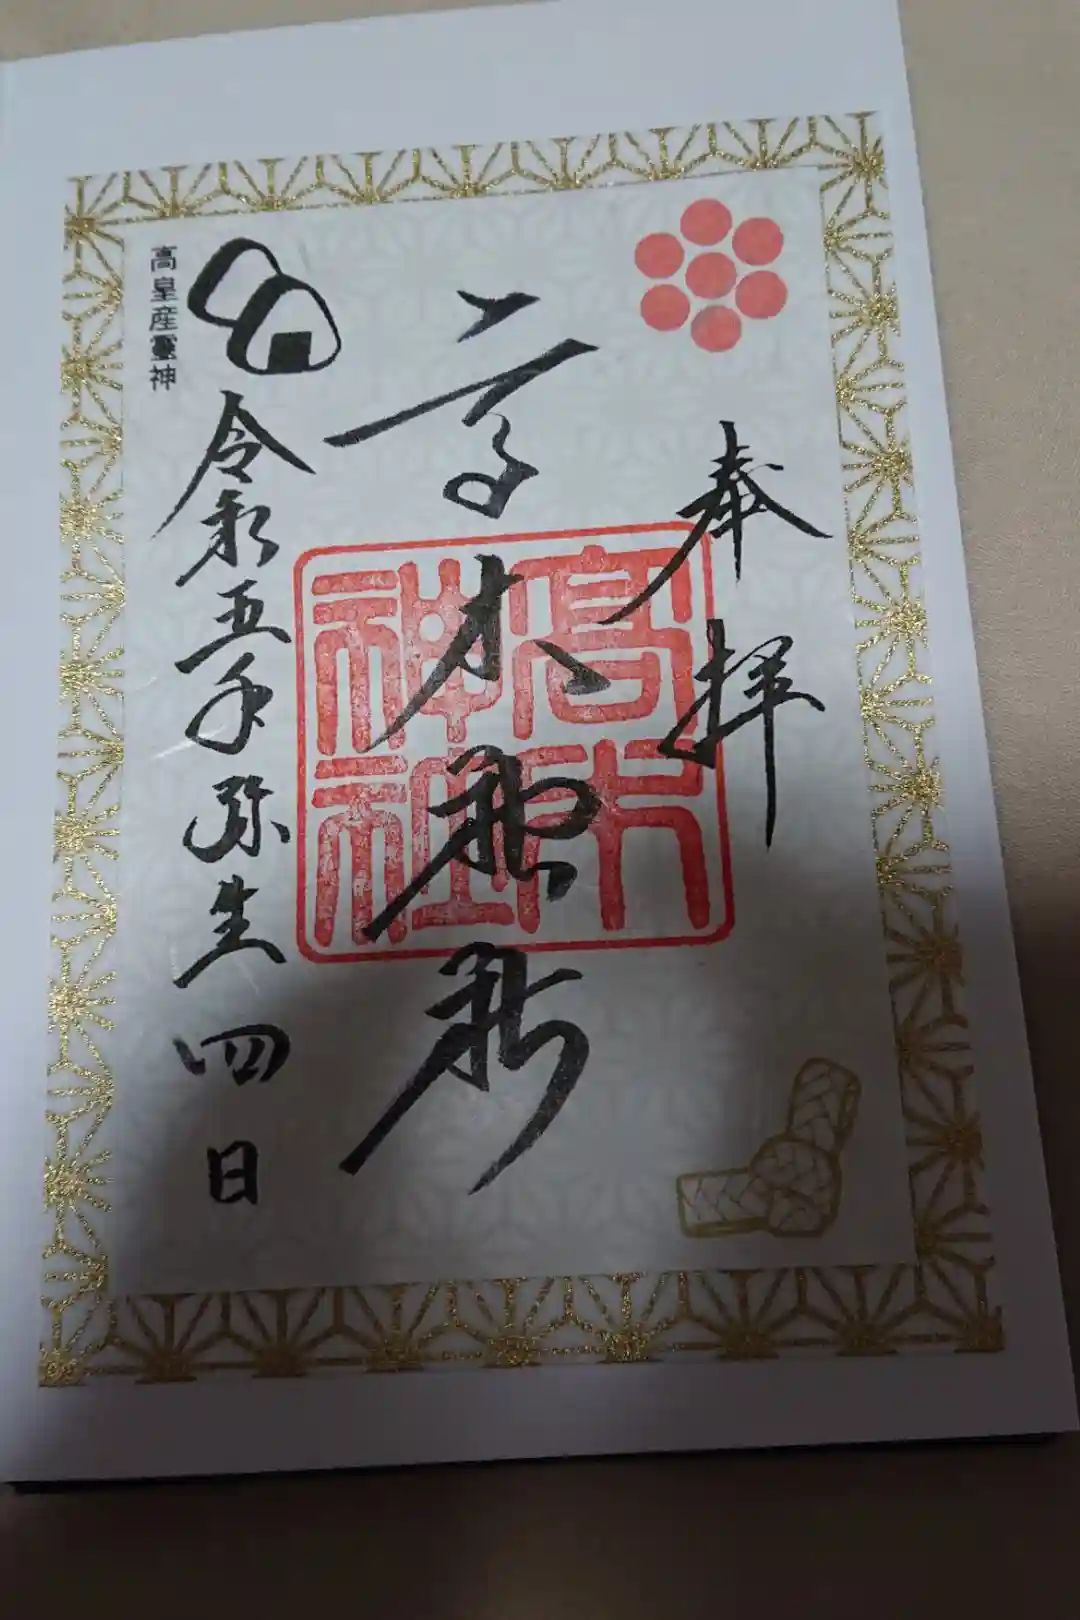 奉拝
高木神社
高木神社
令和五年弥生四日
高皇産靈神